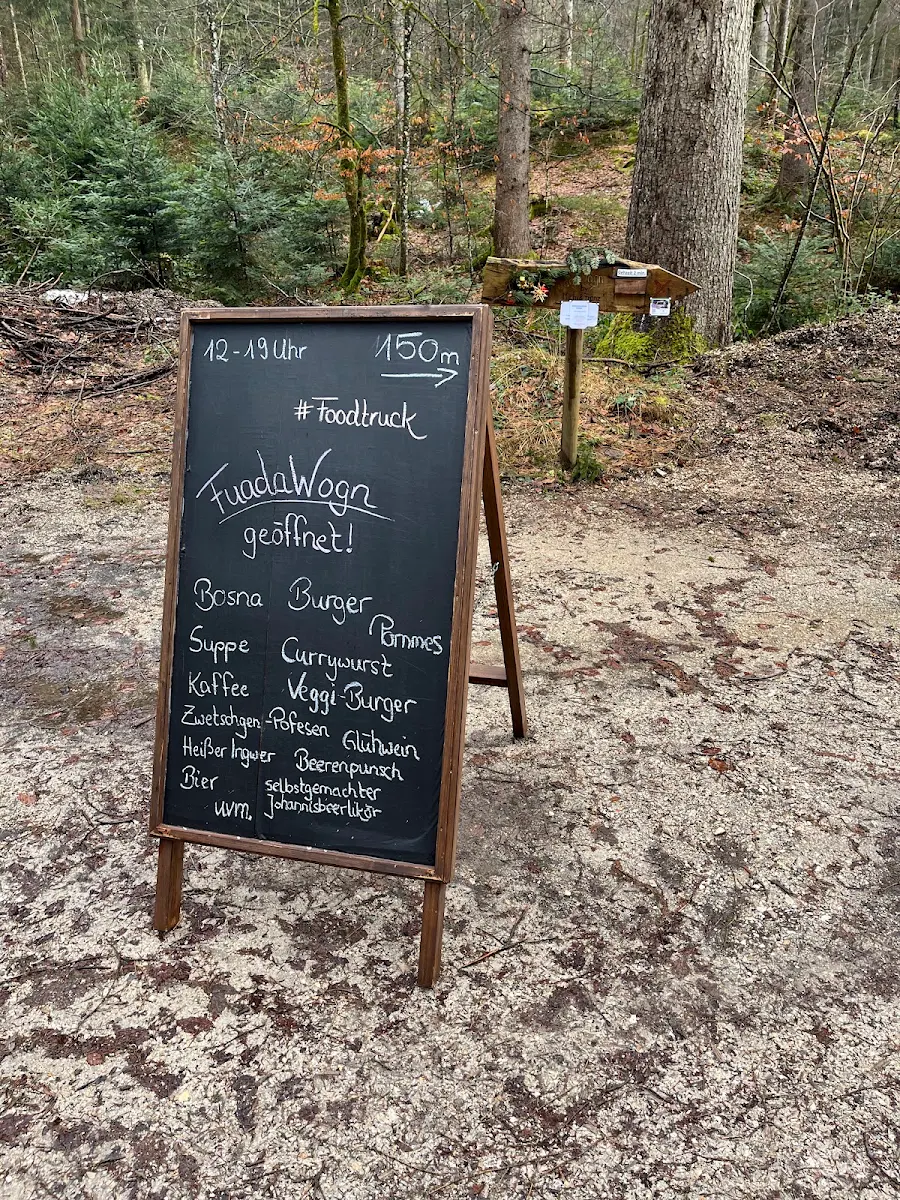 12-19 Uhr
150m
#Foodtruck
FuadaWogn
geöffnet!
Bosna Burger
Pommes
Suppe Currywurst
Kaffee Veggi-Burger
Zwetschgen-Pofesen
Glühwein
Heißer Ingwer Beerenpunsch
Bier selbstgemachter
Johannisbeerlikör
uvm.